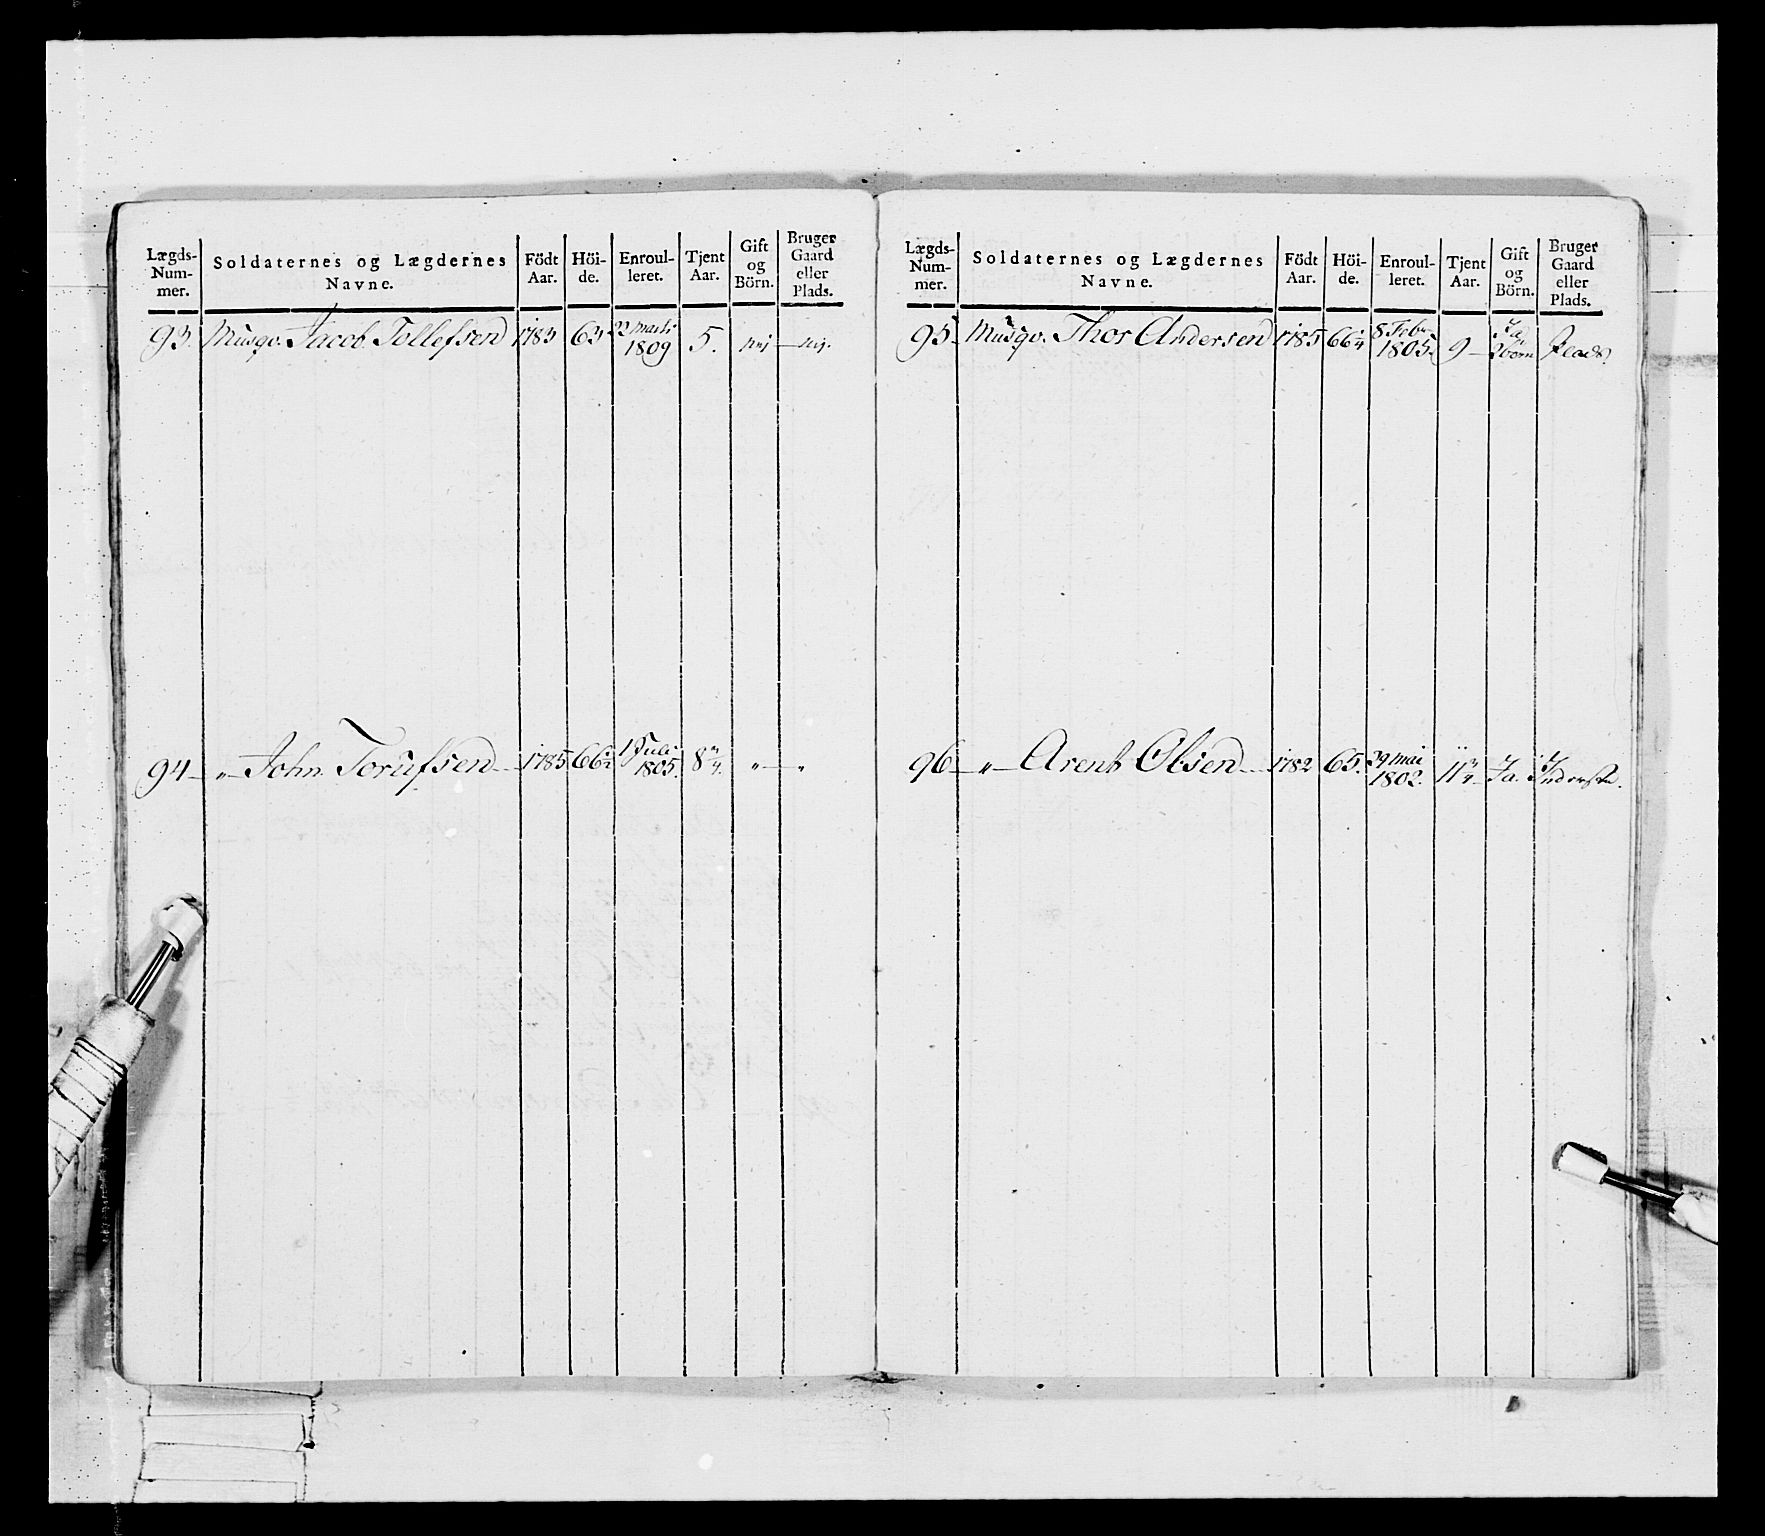 Lægds-Num-mer. Soldaternes og Lægdernes Navne. Födt Aar. Höi-de. Enroul-leret. Tjent Aar. Gift og Börn. Bruger Gaard eller Plads.
93. Musqv. Jacob Tollefsen 1783 63 22 Marti 1809 5. nej — nej.
94 — „ — John Torufsen 1785 66½ 1 Juli 1805. 8¾. „ — „
Lægds-Num-mer. Soldaternes og Lægdernes Navne. Födt Aar. Höi-de. Enroul-leret. Tjent Aar. Gift og Börn. Bruger Gaard eller Plads.
95 Musqv. Thor Andersen 1785 66¼ 8 Febr 1805. 9 — Ja, 2 börn Plads
96 — „ — Arent Olsen 1782 65. 29 Mai 1802. 11¾ Ja. Inderste.